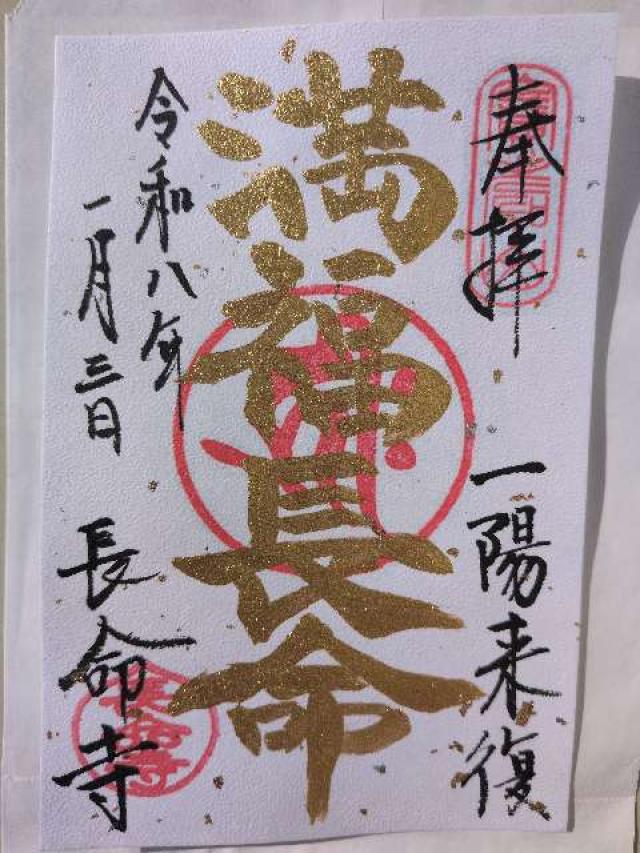 奉拝
一陽来復
満福長命
令和八年
一月三日
長命寺